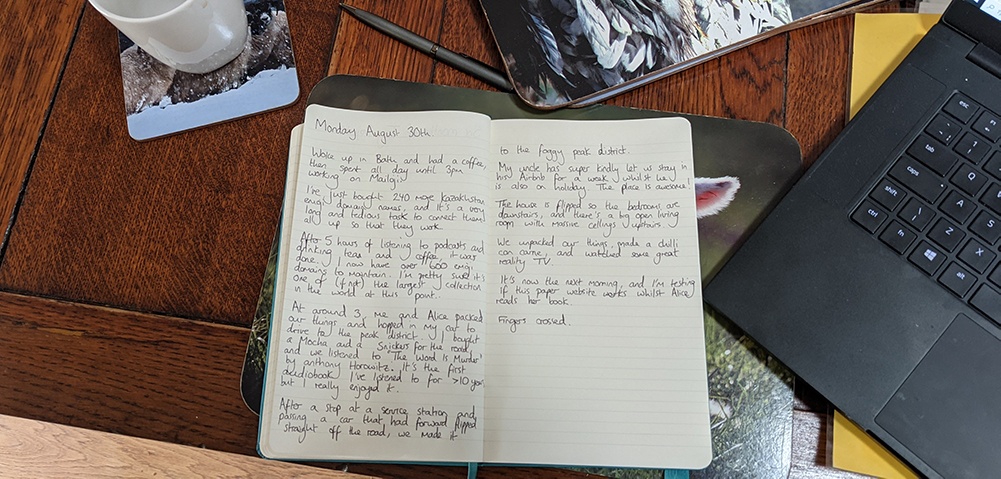 Monday August 30th
Woke up in Bath and had a coffee,
then spent all day until 3pm
working on Mailoji.
I've just bought 240 more Kazakhstan
emoji domain names, and it's a very
long and tedious task to connect them
all up so that they work.
After 5 hours of listening to podcasts and
drinking teas and coffee, it was
done. I now have over 600 emoji
domains to maintain. I'm pretty sure it's
one of (if not) the largest collection
in the world at this point.
At around 3, me and Alice packed
our things and hopped in my car to
drive to the peak district. I bought
a Mocha and a Snickers for the road,
and we listened to 'The Word Is Murder'
by anthony Horowitz. It's the first
audiobook I've listened to for >10 years
but I really enjoyed it.
After a stop at a service station and
passing a car that had forward flipped
straight off the road, we made it
to the foggy peak district.
My uncle has super kindly let us stay in
his Airbnb for a week, whilst he
is also on holiday. The place is awesome!
The house is flipped so the bedrooms are
downstairs, and there's a big open living
room with massive ceilings upstairs.
We unpacked our things, made a chilli
con carne, and watched some great
reality TV.
It's now the next morning, and I'm testing
if this paper website works whilst Alice
reads her book.
Fingers crossed.
esc
F1
1
2
tab
Q
caps
A
S
shift
Z
ctrl
fn
alt